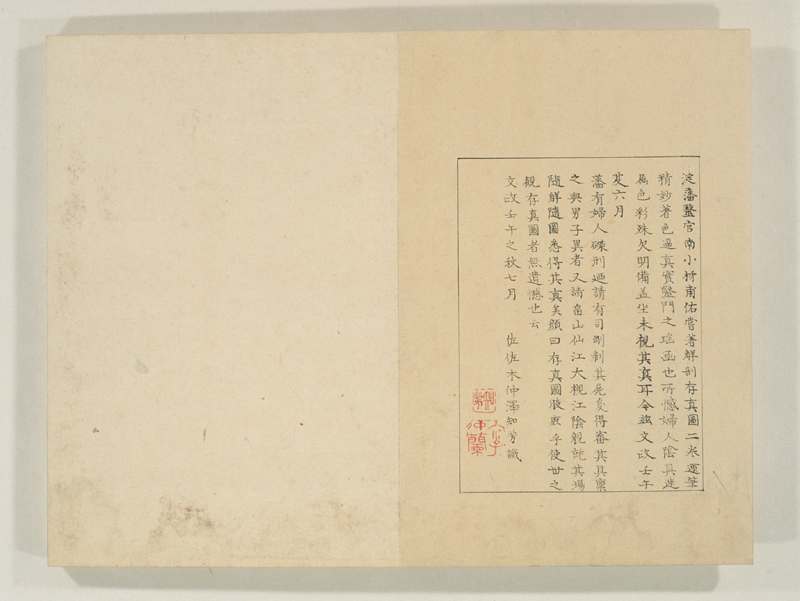 淀藩醫官南小柿甫佑嘗著解剖存真圖二卷運筆
精妙著色逼真實醫門之瑶函也所憾婦人陰具
色彩殊欠明備盖坐未視其真耳今茲文政壬午
夏六月
藩有婦人磔刑廼請有司剮剥其屍爰得審其具稟
之與男子異者又請畠山仙江大槻江陰親其場
隨解隨圖悉得其真矣顏曰存真圖腋庶乎使世之
観存真圖者無遺憾也云
文政壬午之秋七月　佐佐木仲澤知芳識